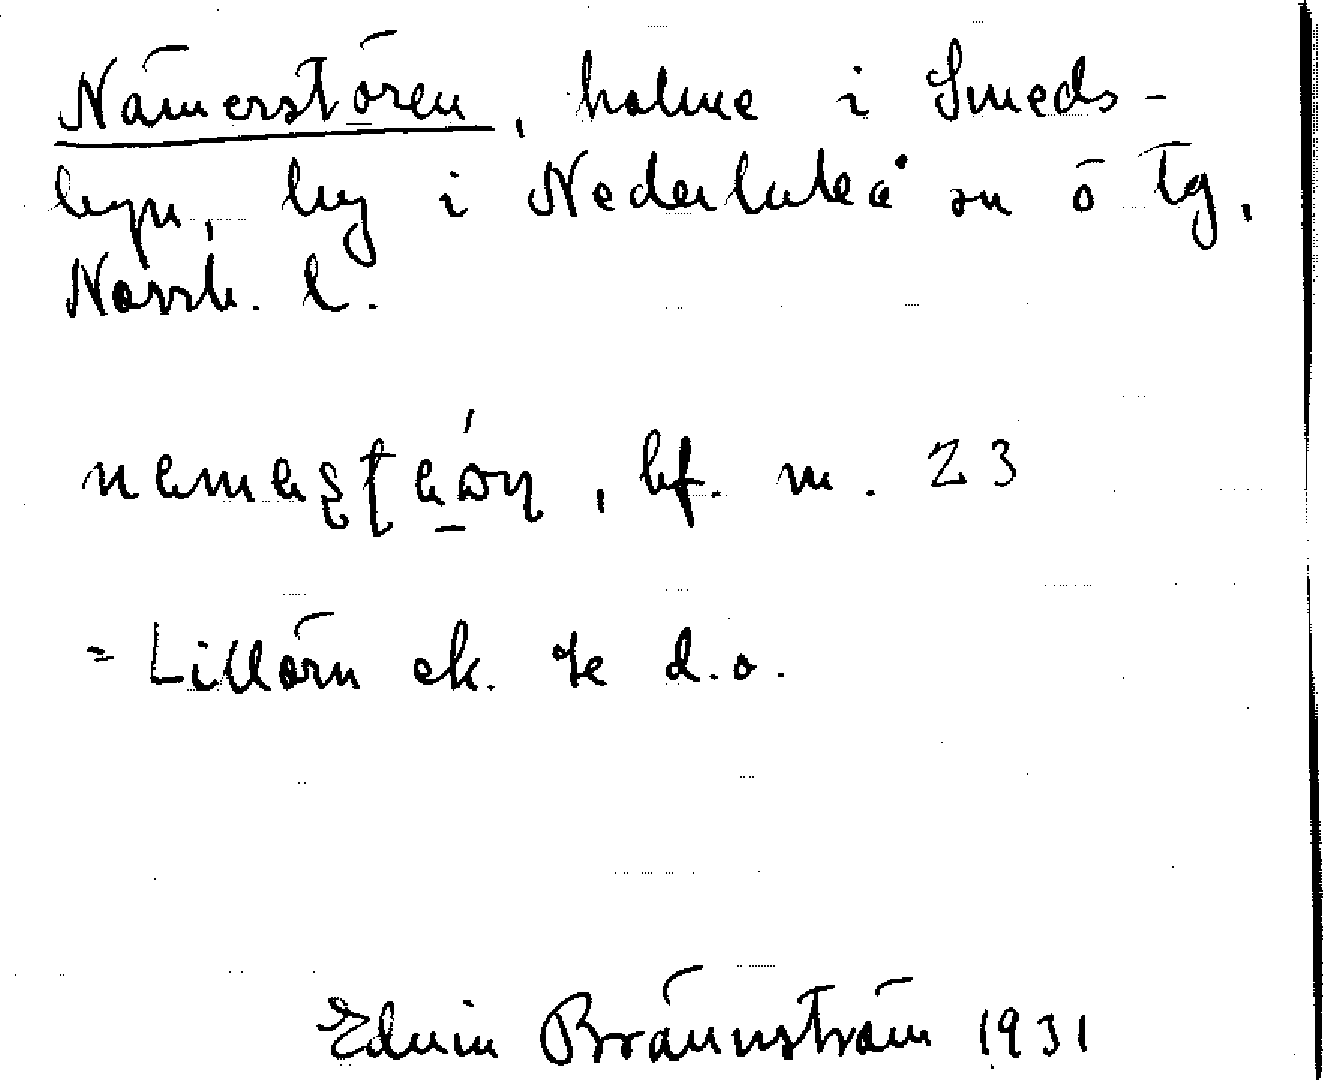 Nämerstören, holme i Smeds-
byn, by i Nederluleå sn o tg,
Norrb. l.
bf. m. 23
= Lillörn ek. bl d.o.
Edvin Brännström 1931